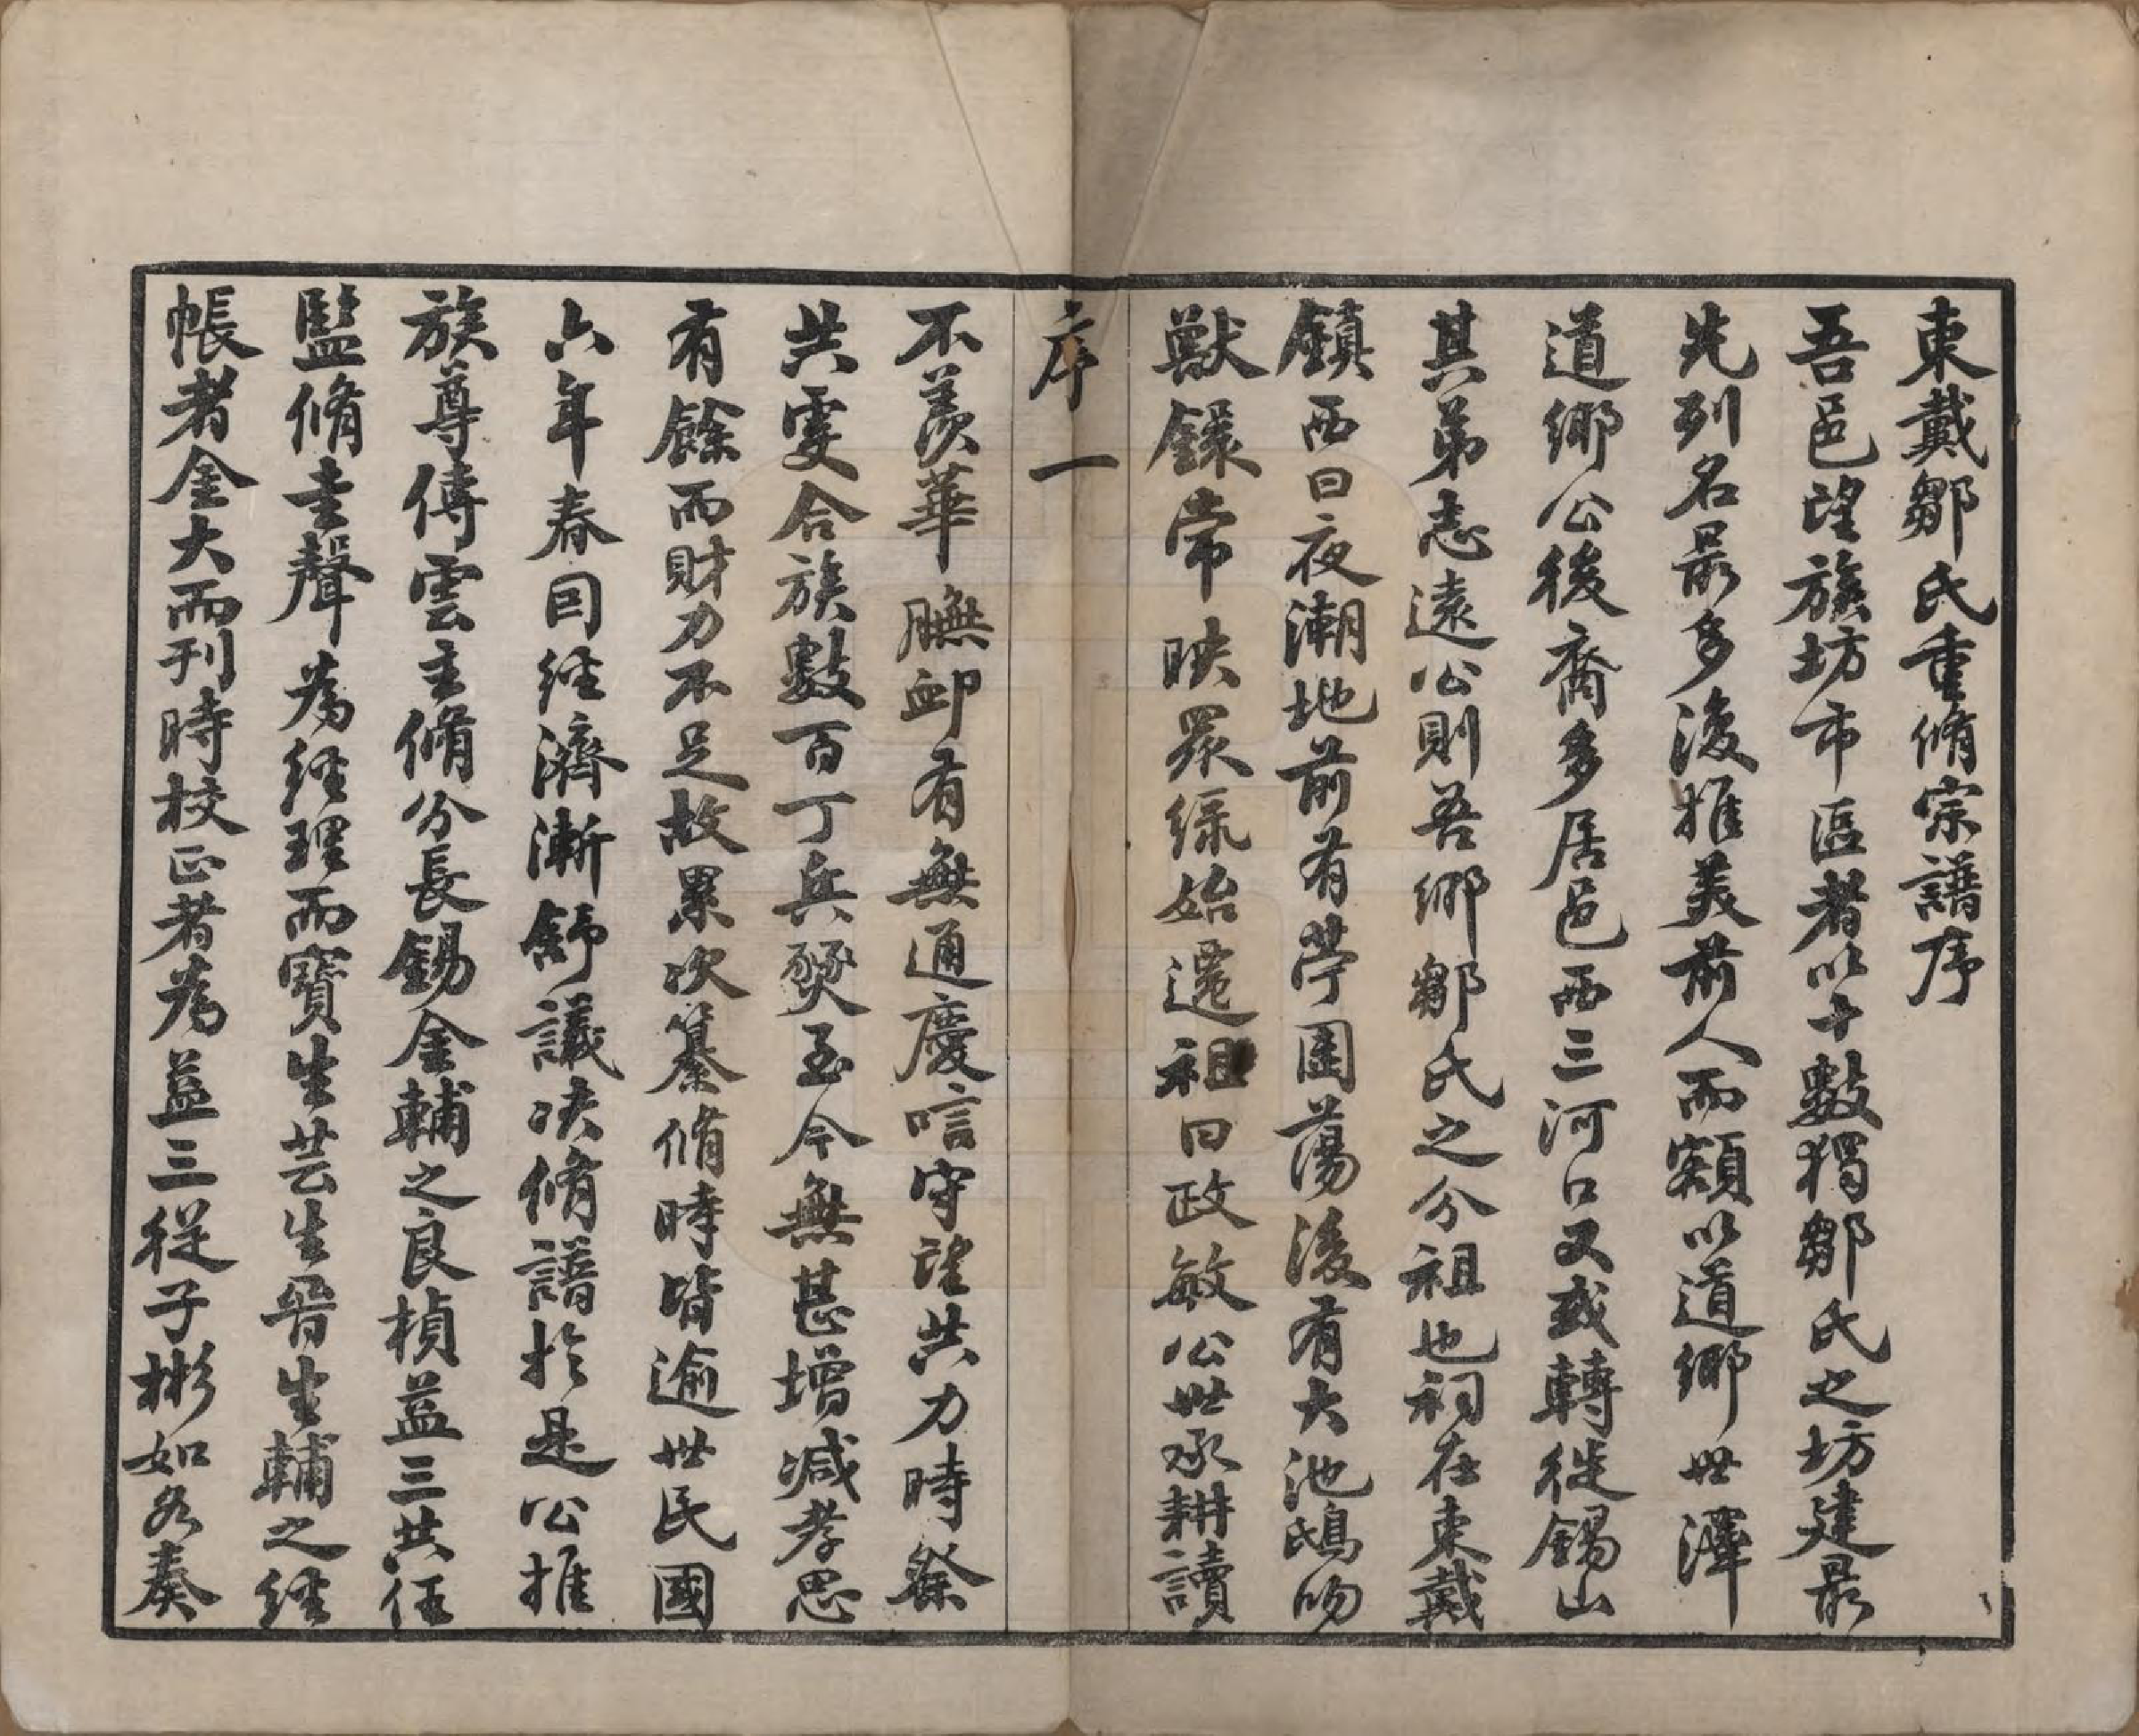 東戴鄒氏重脩宗譜序
吾邑望族坊市區者以十數獨鄒氏之坊建最
先列名最多後推美前人而額以道鄉世澤
道鄉公後裔多居邑西三河口又或轉徙錫山
其弟志遠公則吾鄉鄒氏之分祖也祠在東戴
鎮西曰夜潮地前有荢園蕩後有大池鴟吻
獸鐶常映眾綠始遷祖曰政敏公世承耕讀
序 一
不羨華膴卹有無通慶唁守望共力時祭
共雯合族數百丁兵燹至今無甚增减孝思
有餘而財力不足故累次纂脩時皆逾世民國
六年春囙経濟漸舒議决脩譜於是公推
族尊傅雲主脩分長錫金輔之良楨益三共任
監脩圭聲為経理而寶生芸生晉生輔之経
帳者金大而刊時校正者為益三從子彬如名奏